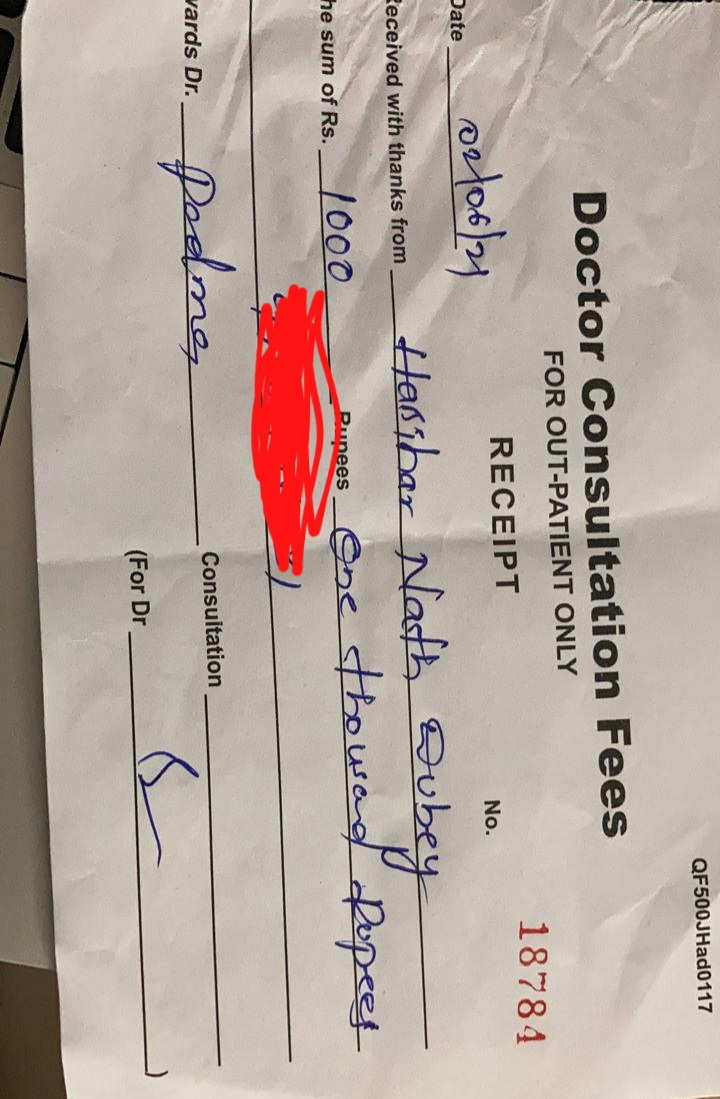 QF500JHad0117
Doctor Consultation Fees
FOR OUT-PATIENT ONLY
RECEIPT No. 18784
Date 02/06/21
Received with thanks from Harihar Nath Dubey
he sum of Rs. 1000 Rupees One thousand Rupees
wards Dr. Padma, Consultation
(For Dr )